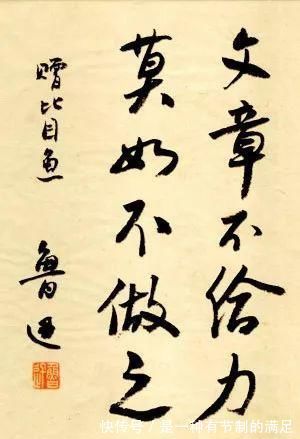 文章不给力
莫如不做之
赠比目鱼
鲁迅
快传号/是一种有节制的满足